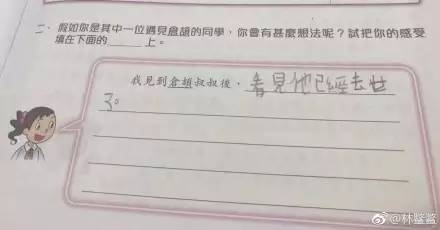 二、假如你是其中一位遇見倉頡的同學，你會有甚麼想法呢？試把你的感受
填在下面的______上。
我見到倉頡叔叔後，看見他已經去世
了。
@林鹽鹽